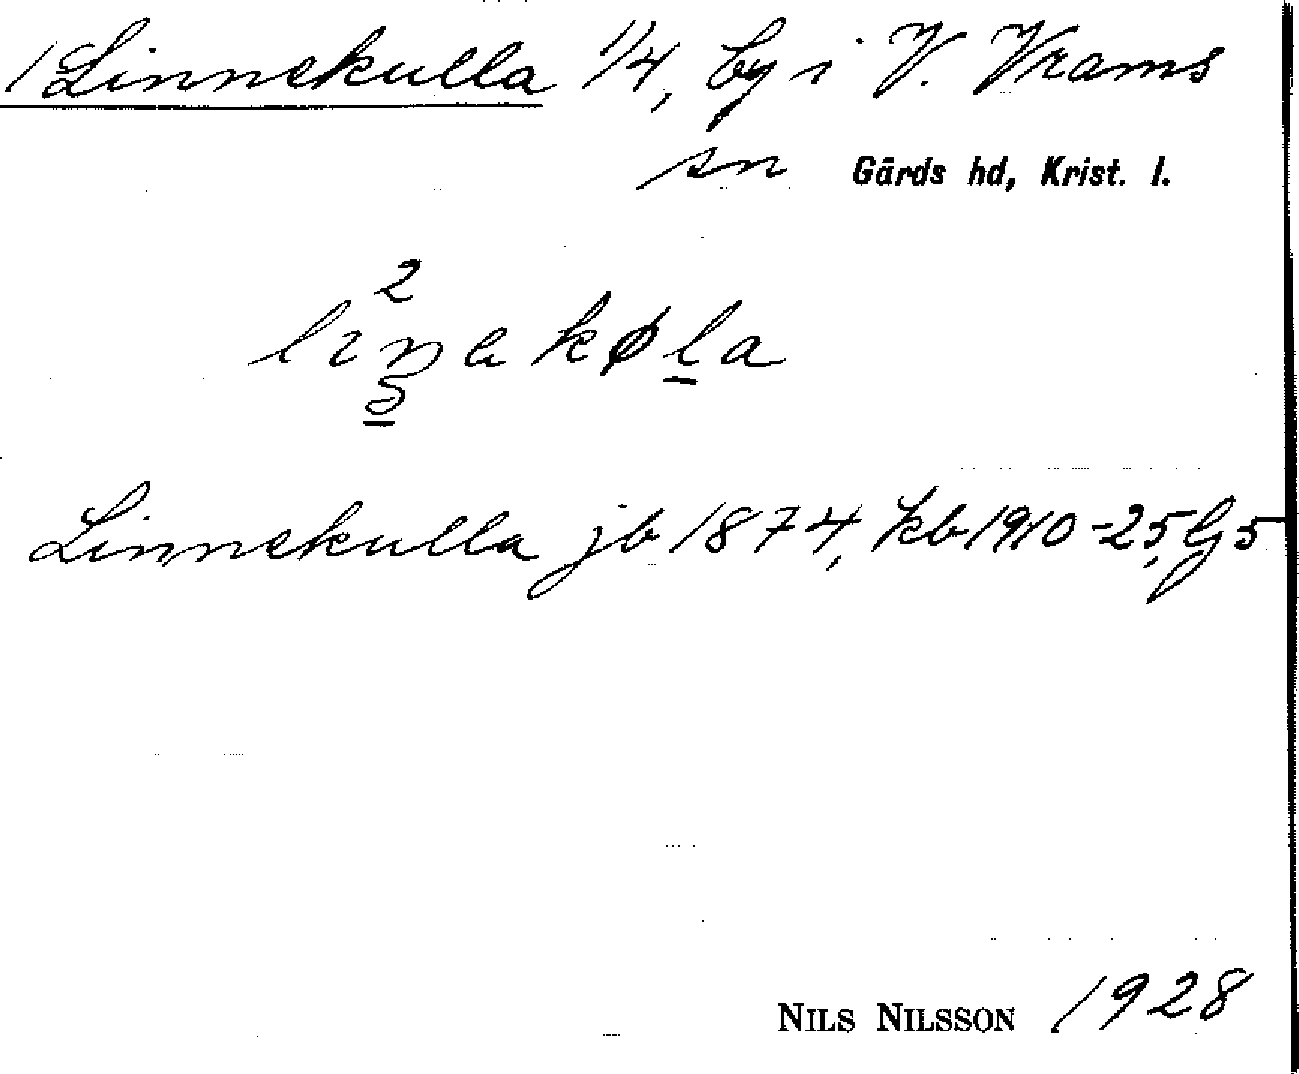 1 Linnekulla 1/4, by i V. Vrams
sn Gärds hd, Krist. l.
2
linakøla
Linnekulla jb 1874, kb 1910-25, Gj 5
NILS NILSSON 1928